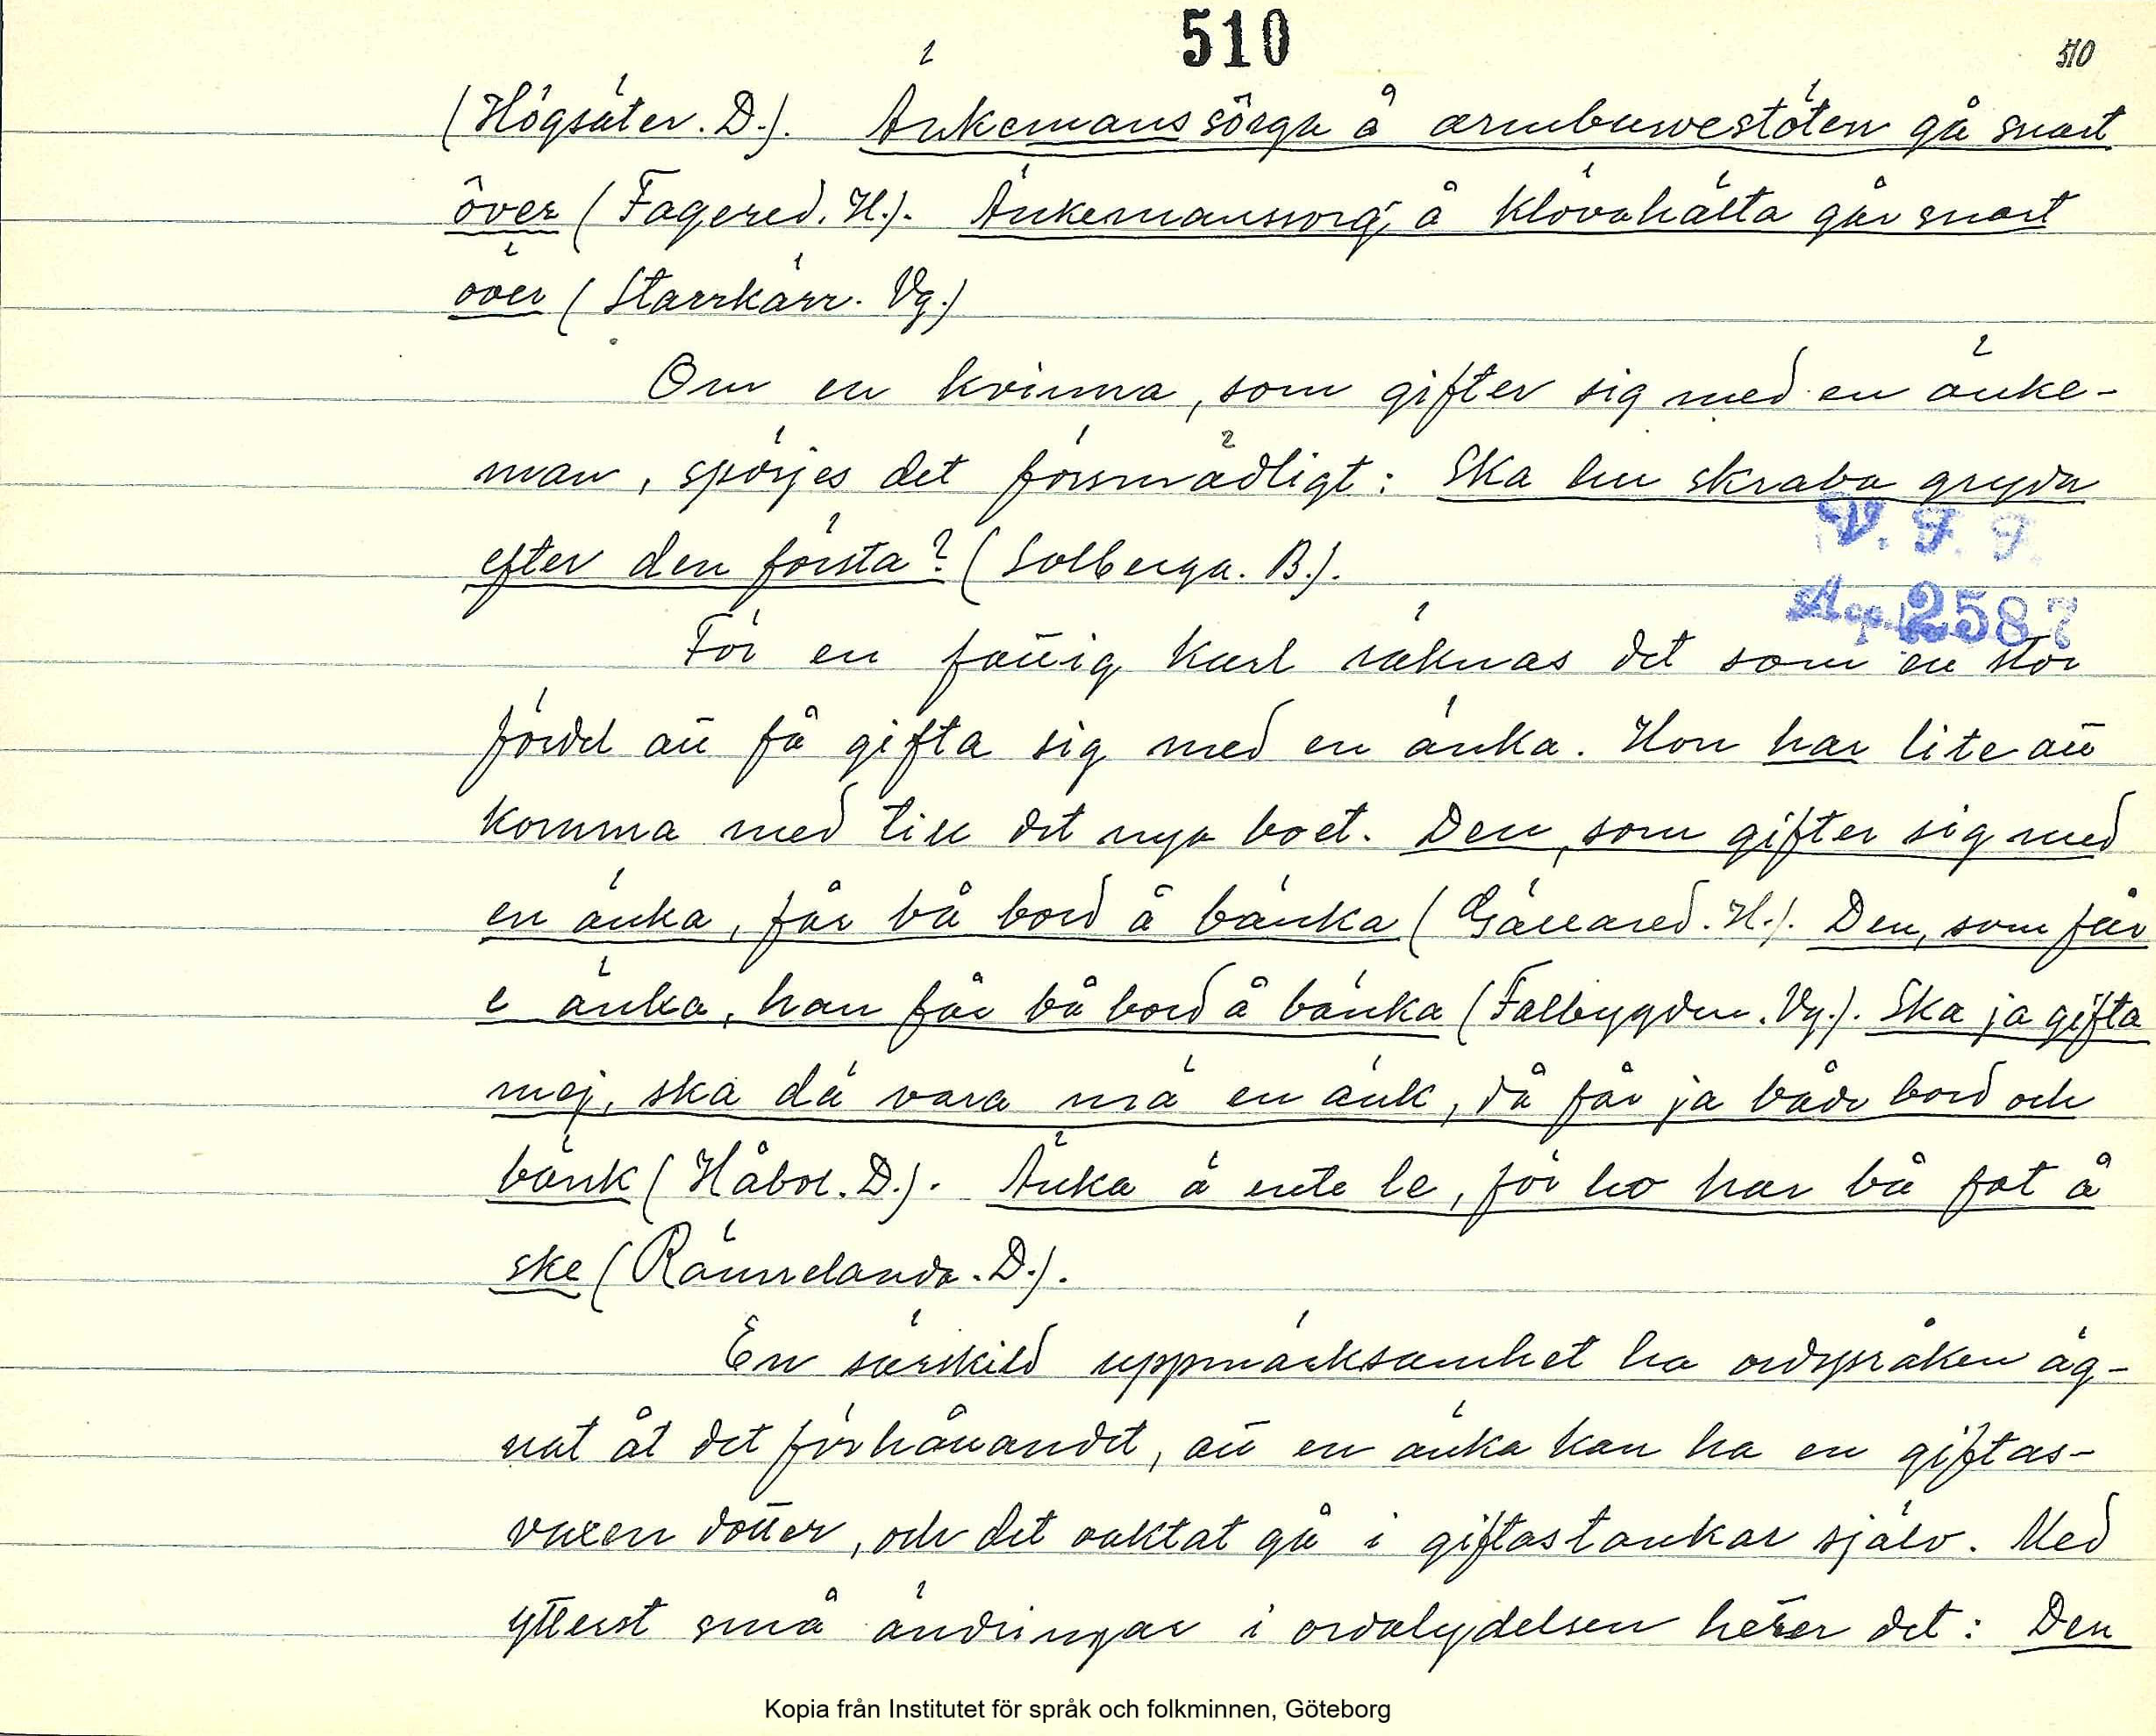 510
510
(Högsäter. D.). Änkemanssörga å armbuwestöten gå snart
över (Fagered. H.). Änkemanssorg å klövahälta går snart
över (Starrkärr. Vg.)
Om en kvinna, som gifter sig med en änke-
man, spörjes det försmädligt: Ska hu skraba gryda
efter den första? (Solberga. B.).
V. F. F.
Acc. 2587
För en fattig karl räknas det som en stor
fördel att få gifta sig med en änka. Hon har lite att
komma med till det nya boet. Den, som gifter sig med
en änka, får bå bord å bänka (Gällared. H.). Den, som får
e änka, han får bå bord å bänka (Falbygden. Vg.). Ska ja gifta
mej, ska dä vara mä en änk, då får ja både bord och
bänk (Håbol. D.). Änka ä ente le, för ho har bå fat å
ske (Rännelanda. D.).
En särskild uppmärksamhet ha ordspråken äg-
nat åt det förhållandet, att en änka kan ha en giftas-
vuxen dotter, och det oaktat gå i giftastankar själv. Med
ytterst små ändringar i ordalydelsen heter det: Den
Kopia från Institutet för språk och folkminnen, Göteborg